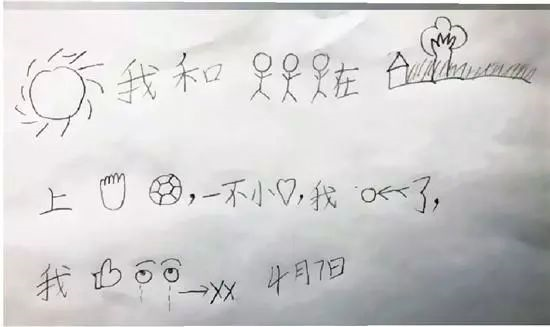 我和在
上，一不小，我了，
我→XX 4月7日